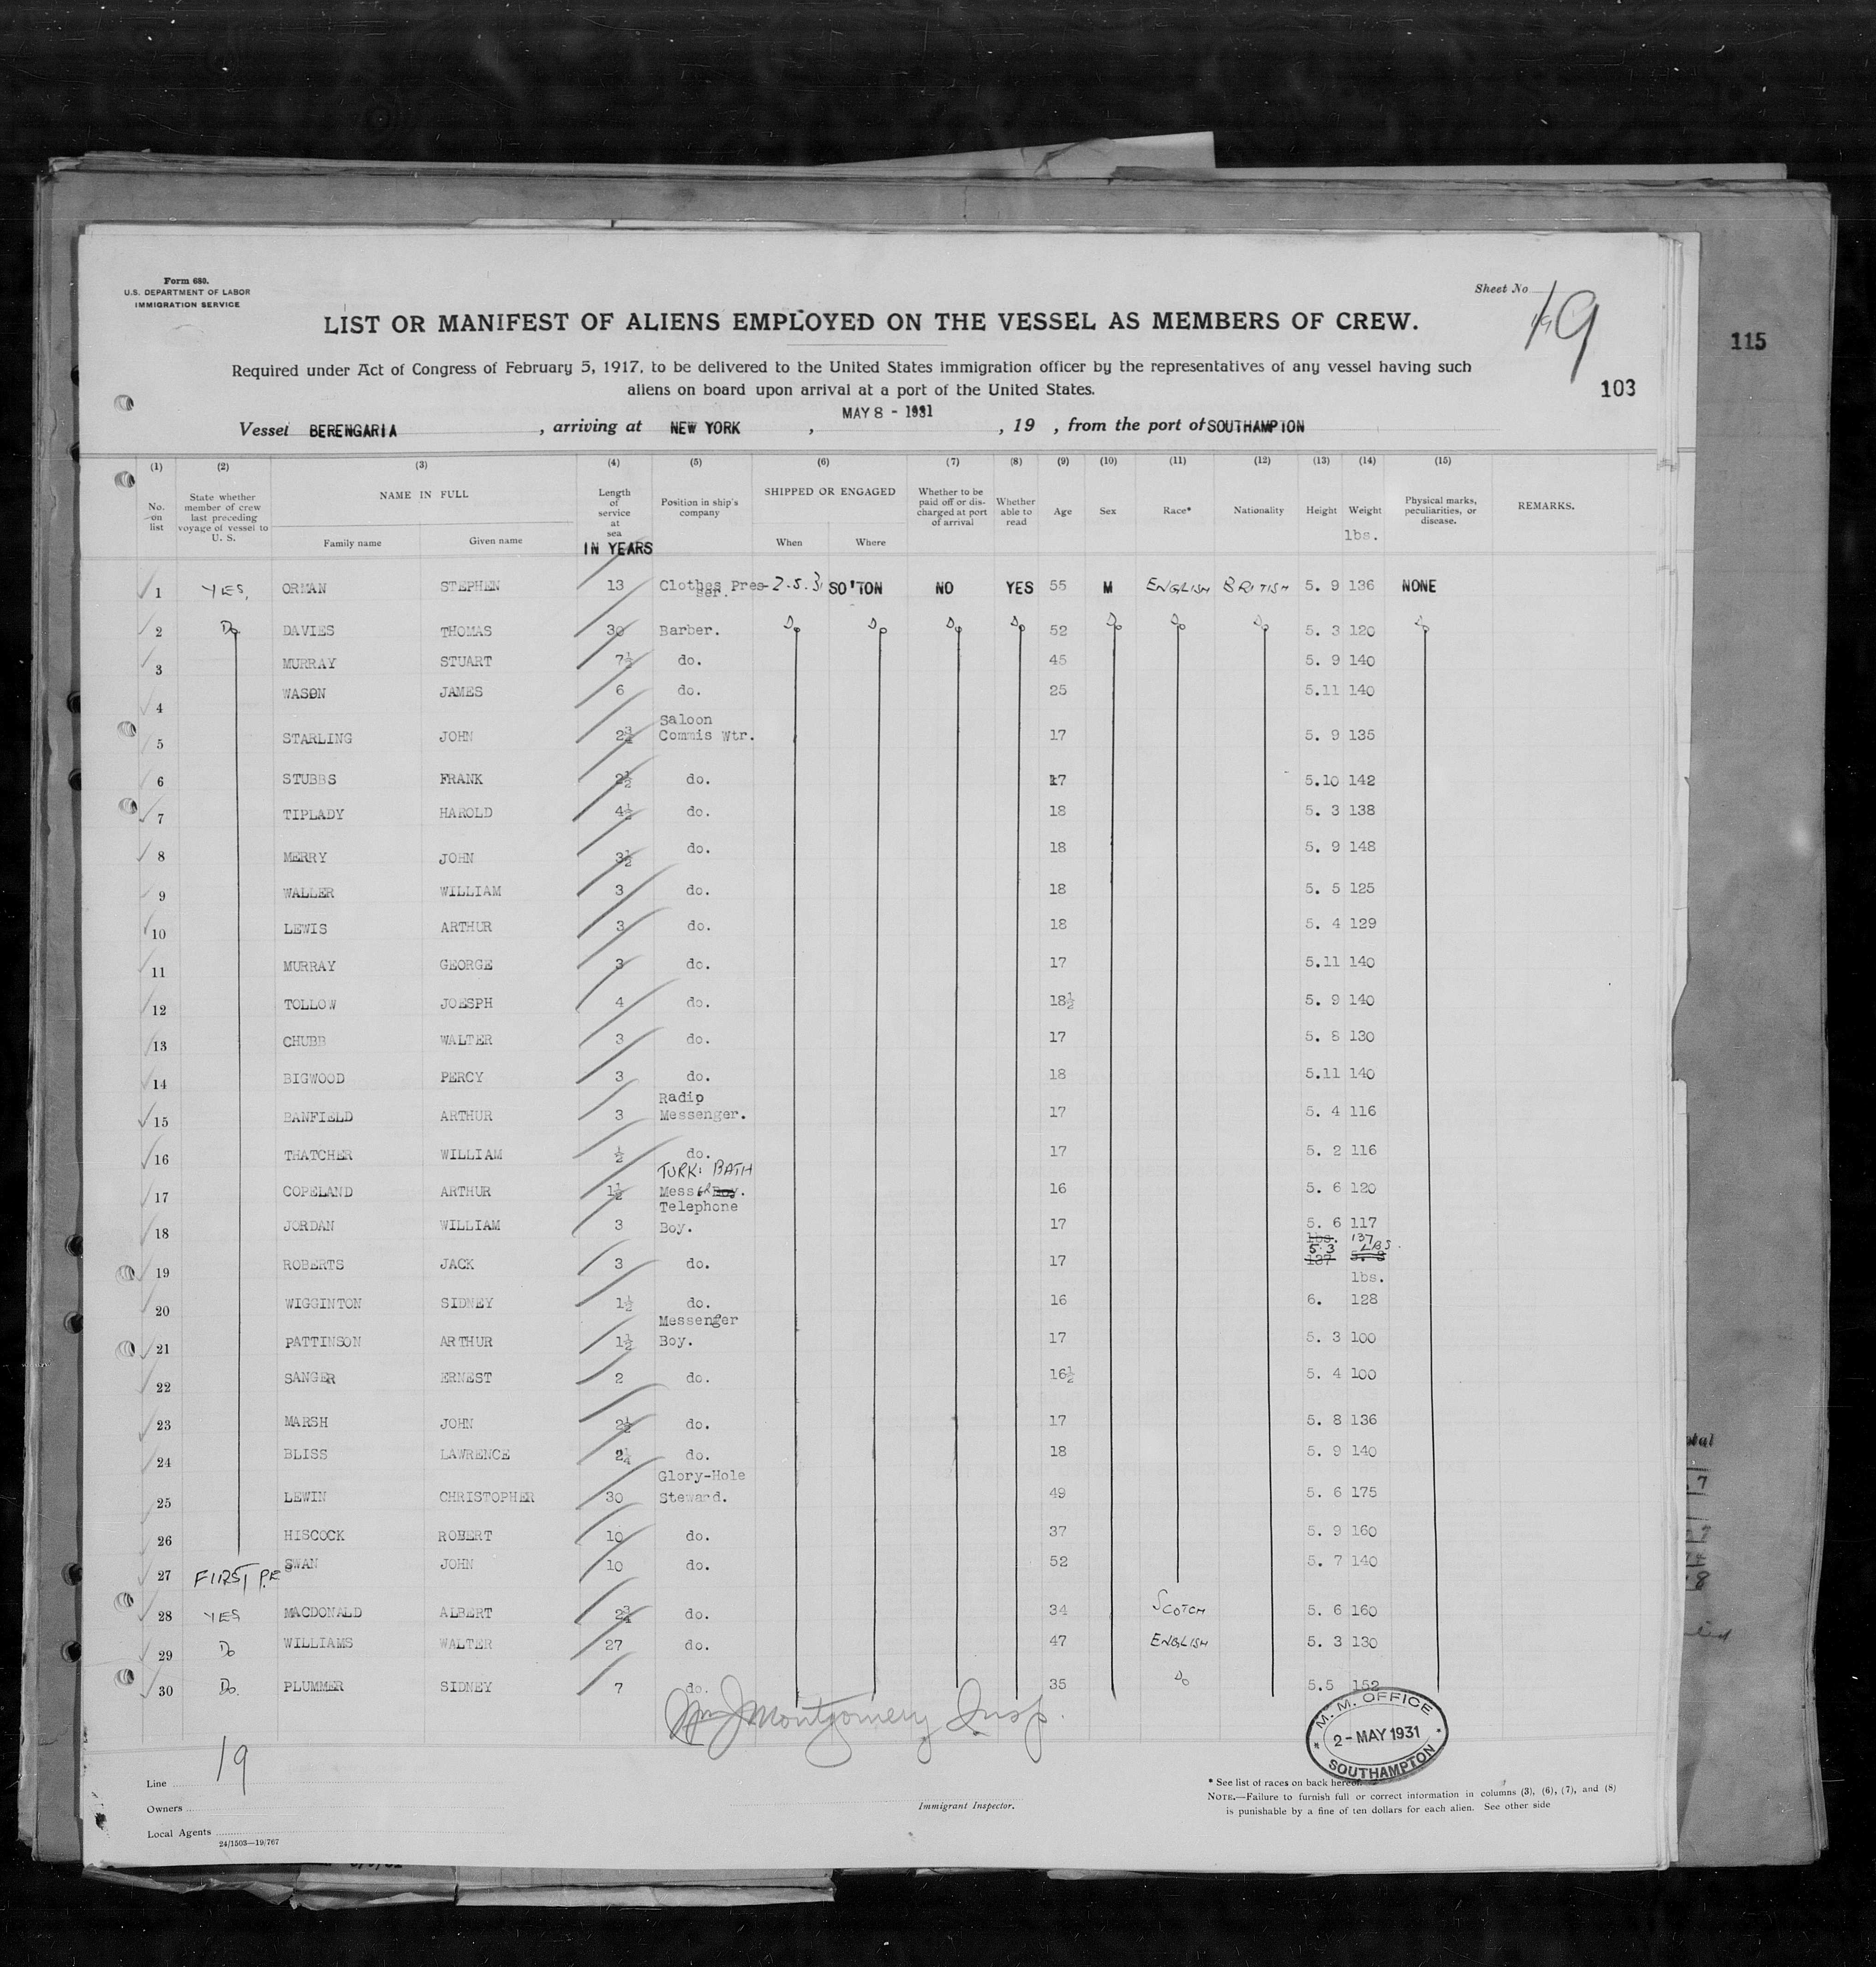 Form 680.
U.S. DEPARTMENT OF LABOR
IMMIGRATION SERVICE
Sheet No 19
LIST OR MANIFEST OF ALIENS EMPLOYED ON THE VESSEL AS MEMBERS OF CREW.
115
Required under Act of Congress of February 5, 1917, to be delivered to the United States immigration officer by the representatives of any vessel having such
aliens on board upon arrival at a port of the United States.
103
MAY 8 - 1931
Vessel BERENGARIA, arriving at NEW YORK, , 19 , from the port of SOUTHAMPTON
(1) (2) (3) (4) (5) (6) (7) (8) (9) (10) (11) (12) (13) (14) (15)
No. on list State whether member of crew last preceding voyage of vessel to U. S. NAME IN FULL Family name Given name Length of service at sea IN YEARS Position in ship's company SHIPPED OR ENGAGED When Where Whether to be paid off or discharged at port of arrival Whether able to read Age Sex Race* Nationality Height Weight lbs. Physical marks, peculiarities, or disease. REMARKS.
1 YES, ORMAN STEPHEN 13 Clothes Pres-ser. 2.5.31 SO'TON NO YES 55 M ENGLISH BRITISH 5. 9 136 NONE
2 Do DAVIES THOMAS 30 Barber. Do Do Do Do 52 Do Do Do 5. 3 120 Do
3 MURRAY STUART 7½ do. 45 5. 9 140
4 WASON JAMES 6 do. 25 5.11 140
5 STARLING JOHN 2¾ Saloon Commis Wtr. 17 5. 9 135
6 STUBBS FRANK 2½ do. 17 5.10 142
7 TIPLADY HAROLD 4½ do. 18 5. 3 138
8 MERRY JOHN 3½ do. 18 5. 9 148
9 WALLER WILLIAM 3 do. 18 5. 5 125
10 LEWIS ARTHUR 3 do. 18 5. 4 129
11 MURRAY GEORGE 3 do. 17 5.11 140
12 TOLLOW JOESPH 4 do. 18½ 5. 9 140
13 CHUBB WALTER 3 do. 17 5. 8 130
14 BIGWOOD PERCY 3 do. 18 5.11 140
15 BANFIELD ARTHUR 3 Radip Messenger. 17 5. 4 116
16 THATCHER WILLIAM ½ do. 17 5. 2 116
17 COPELAND ARTHUR 1½ TURK: BATH Mess GR Boy. 16 5. 6 120
18 JORDAN WILLIAM 3 Telephone Boy. 17 5. 6 117
19 ROBERTS JACK 3 do. 17 lbs. 5.3 137 137 LBS. lbs.
20 WIGGINTON SIDNEY 1½ do. 16 6. 128
21 PATTINSON ARTHUR 1½ Messenger Boy. 17 5. 3 100
22 SANGER ERNEST 2 do. 16½ 5. 4 100
23 MARSH JOHN 2½ do. 17 5. 8 136
24 BLISS LAWRENCE 2¼ do. 18 5. 9 140
25 LEWIN CHRISTOPHER 30 Glory-Hole Steward. 49 5. 6 175
26 HISCOCK ROBERT 10 do. 37 5. 9 160
27 FIRST P.E SWAN JOHN 10 do. 52 5. 7 140
28 YES MACDONALD ALBERT 2¾ do. 34 SCOTCH 5. 6 160
29 Do WILLIAMS WALTER 27 do. 47 ENGLISH 5. 3 130
30 Do. PLUMMER SIDNEY 7 do. 35 Do 5.5 152
Wm J Montgomery Insp.
M. M. OFFICE
2 - MAY 1931
SOUTHAMPTON
19
Line
Owners
Local Agents
24/1503—19/767
Immigrant Inspector.
* See list of races on back hereof.
NOTE.—Failure to furnish full or correct information in columns (3), (6), (7), and (8)
is punishable by a fine of ten dollars for each alien. See other side